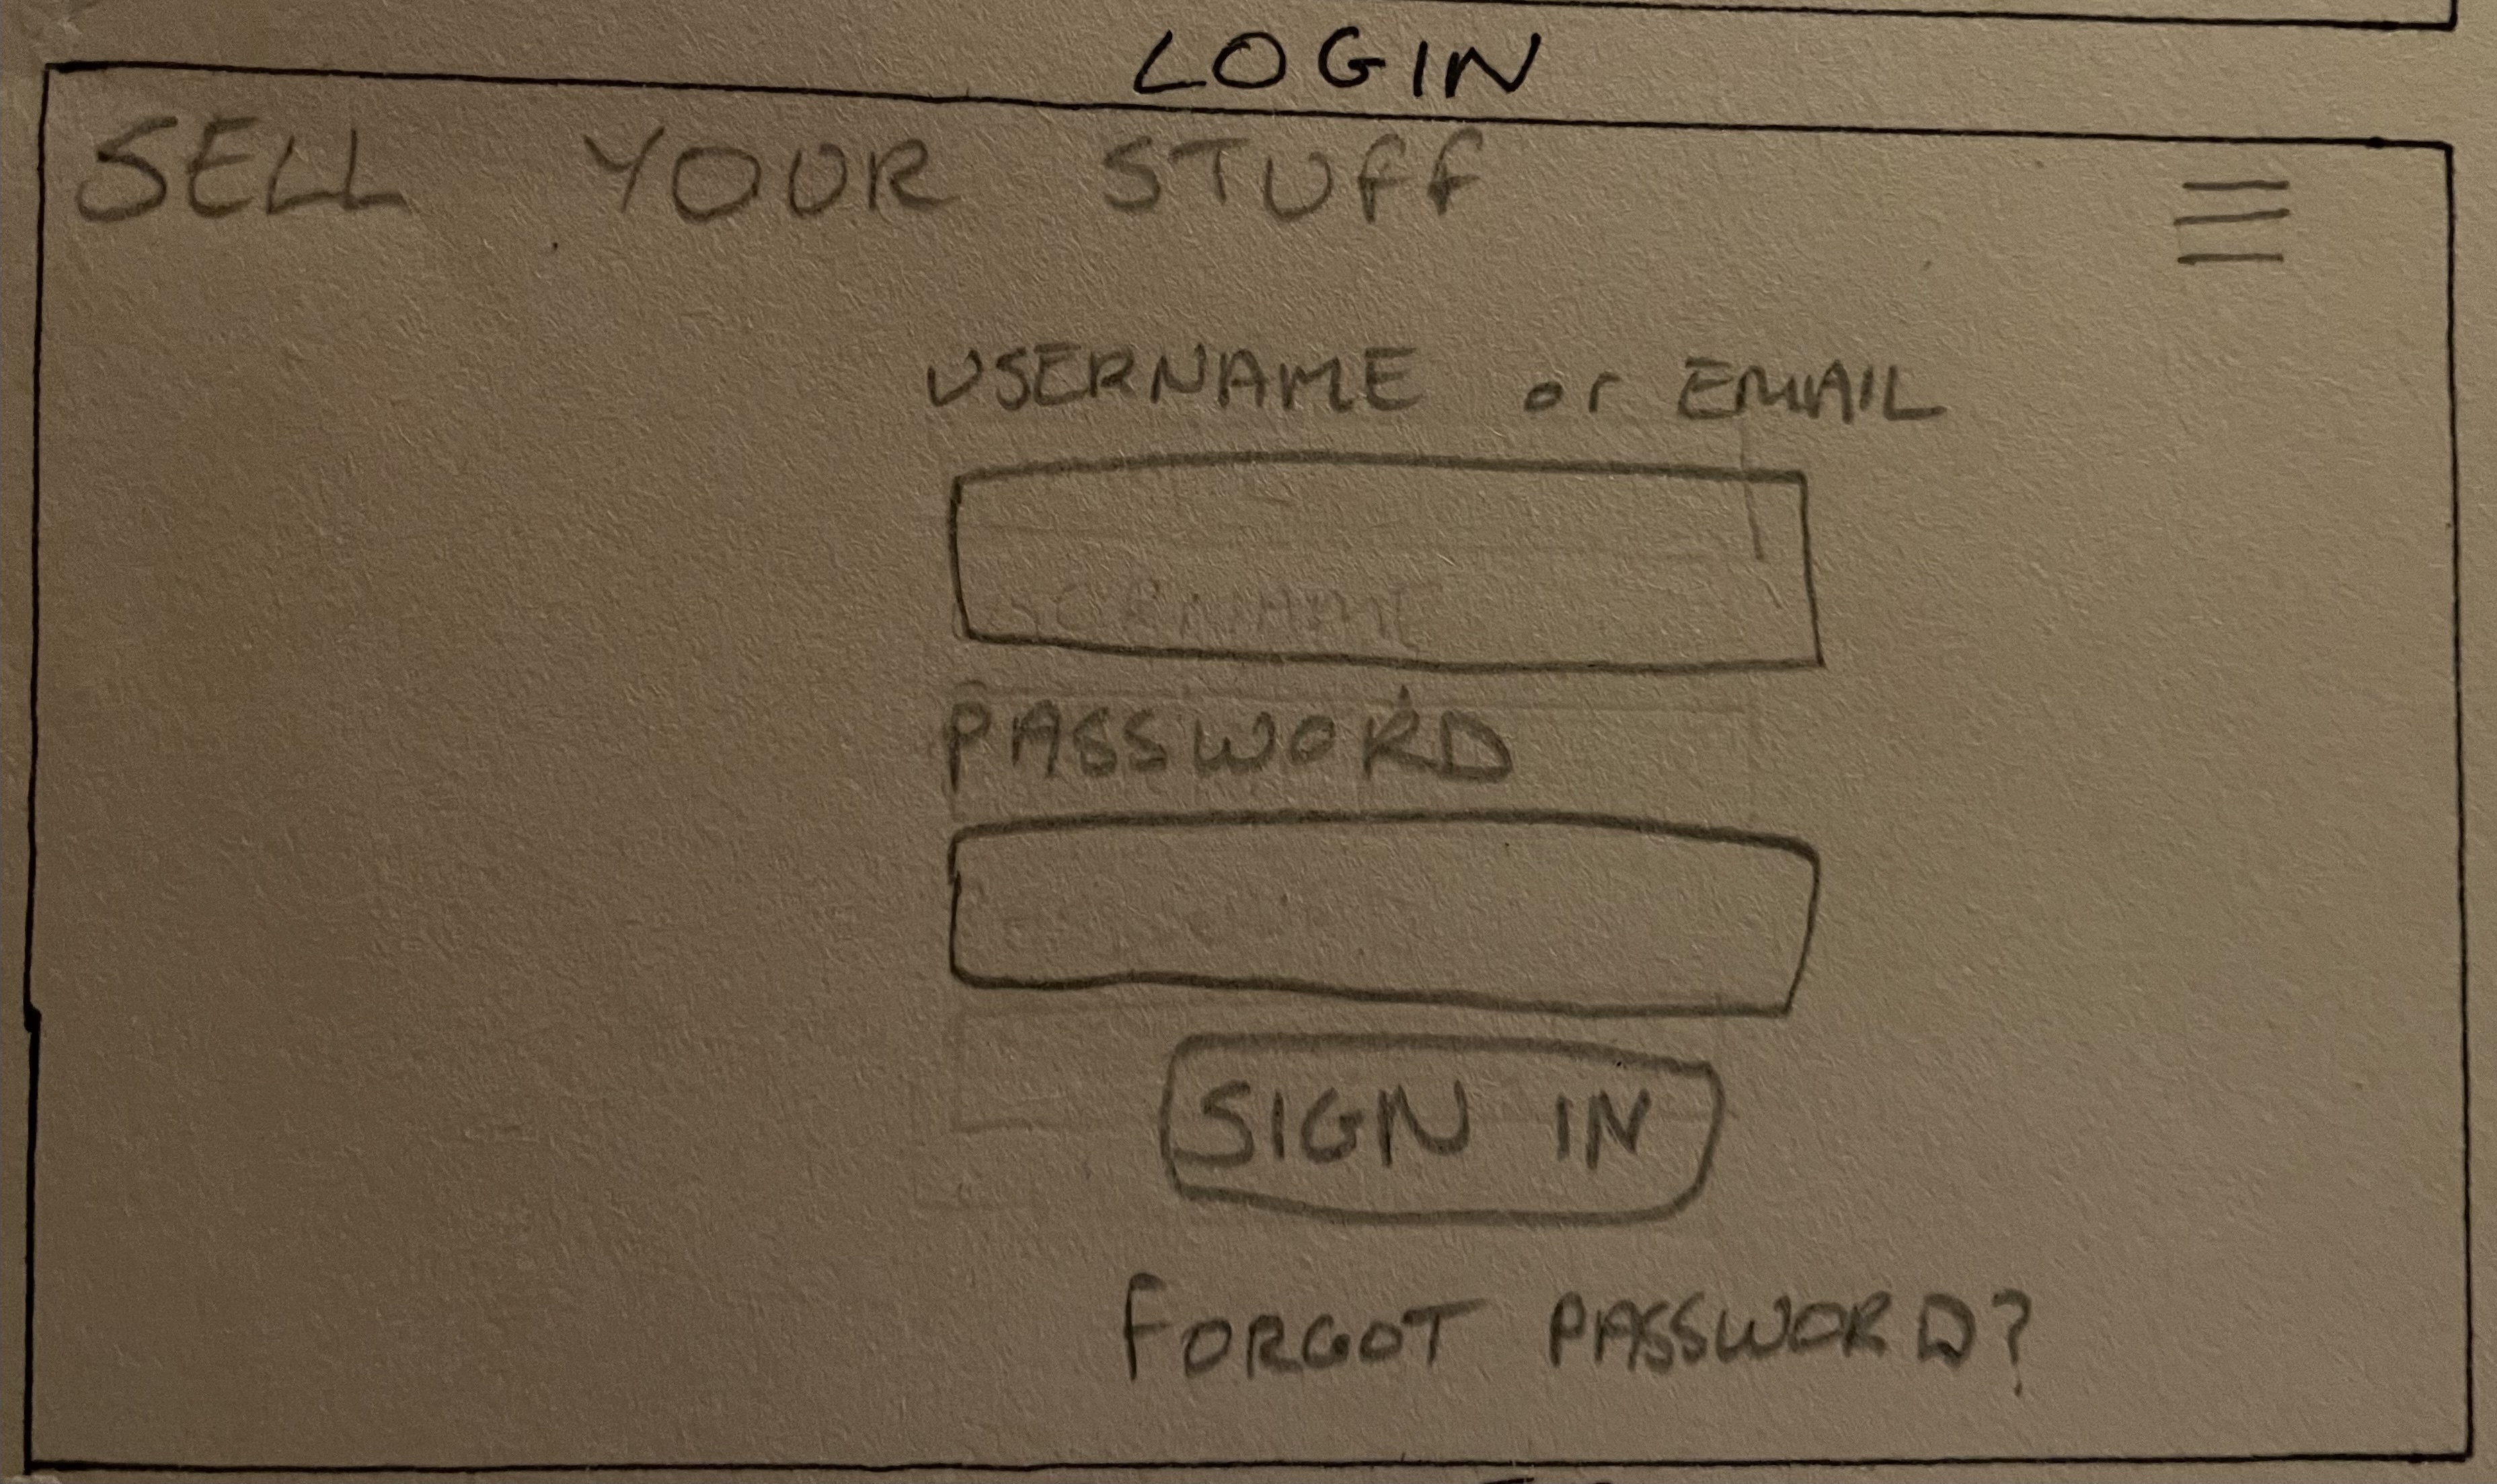 LOGIN
SELL YOUR STUFF
USERNAME or EMAIL
USERNAME
PASSWORD
SIGN IN
FORGOT PASSWORD?